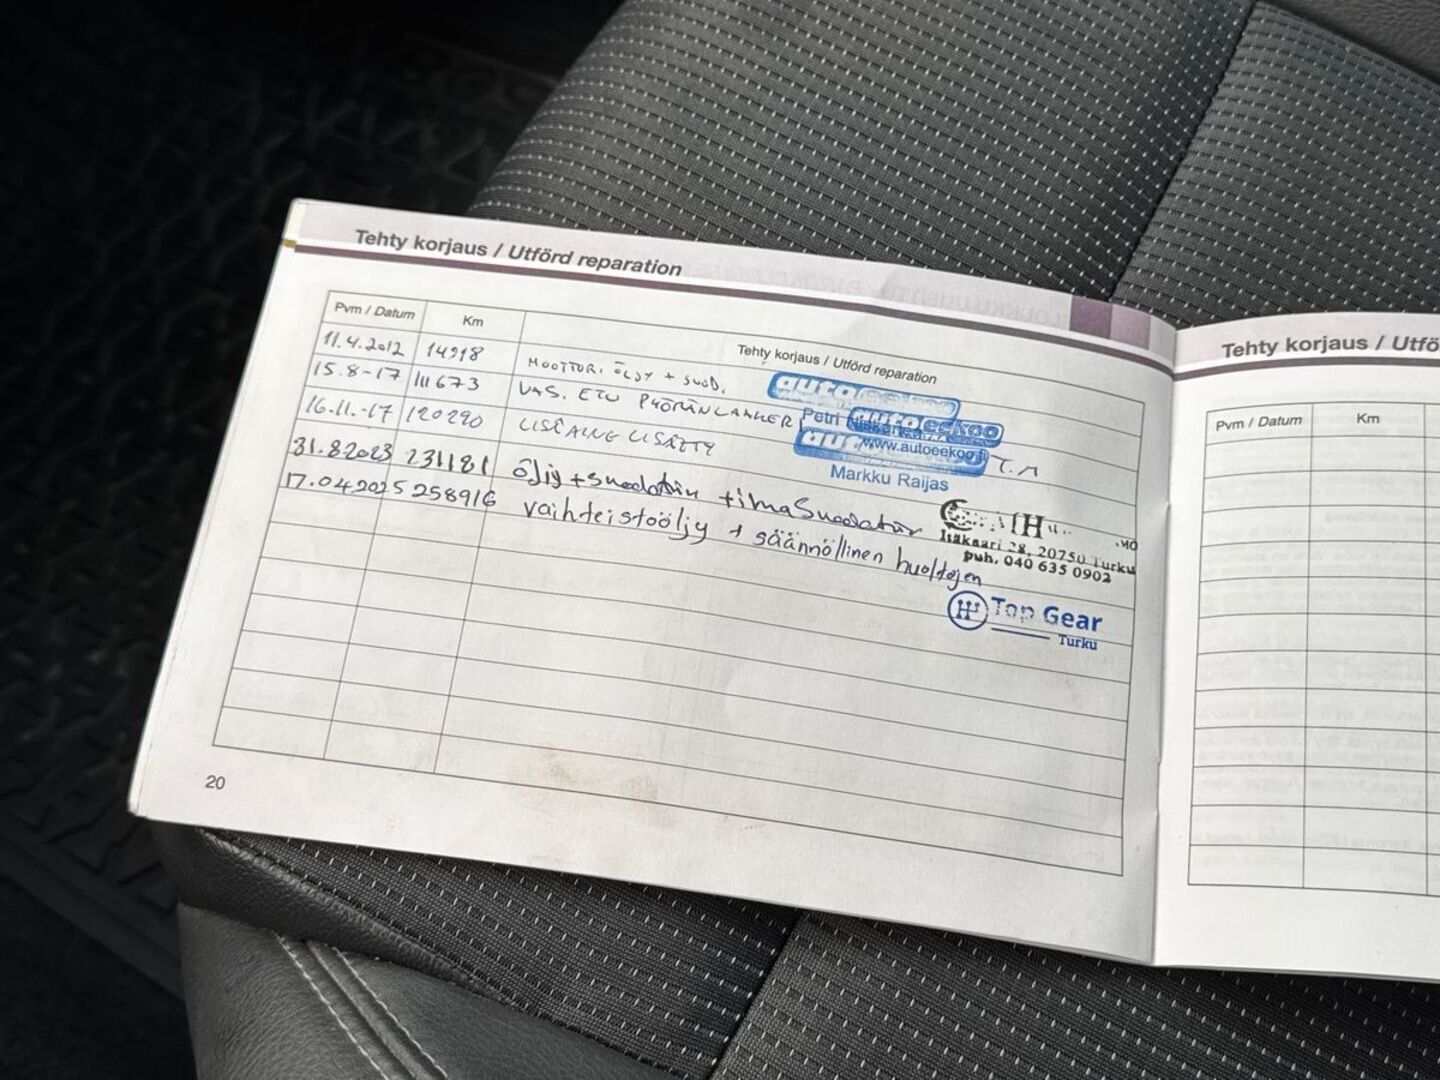 Tehty korjaus / Utförd reparation
Pvm / Datum Km Tehty korjaus / Utförd reparation
11.4.2012 14918 MOOTTORI ÖLJY + SUOD.
15.8-17 111673 VAS. ETU PYÖRÄNLAAKERI
16.11.-17 120290 LISÄAINE LISÄTTY
autoeekoo
Petri
autoeekoo
www.autoeekoo.fi T.M
Markku Raijas
31.8.2023 231181 öljy + suodatin + ilmaSuodatin
Itäkaari 28, 20750 Turku
puh. 040 635 0902
17.04.2025 258916 vaihteistoöljy + säännöllinen huoltojen
Top Gear
Turku
20
Tehty korjaus / Utfö
Pvm / Datum Km